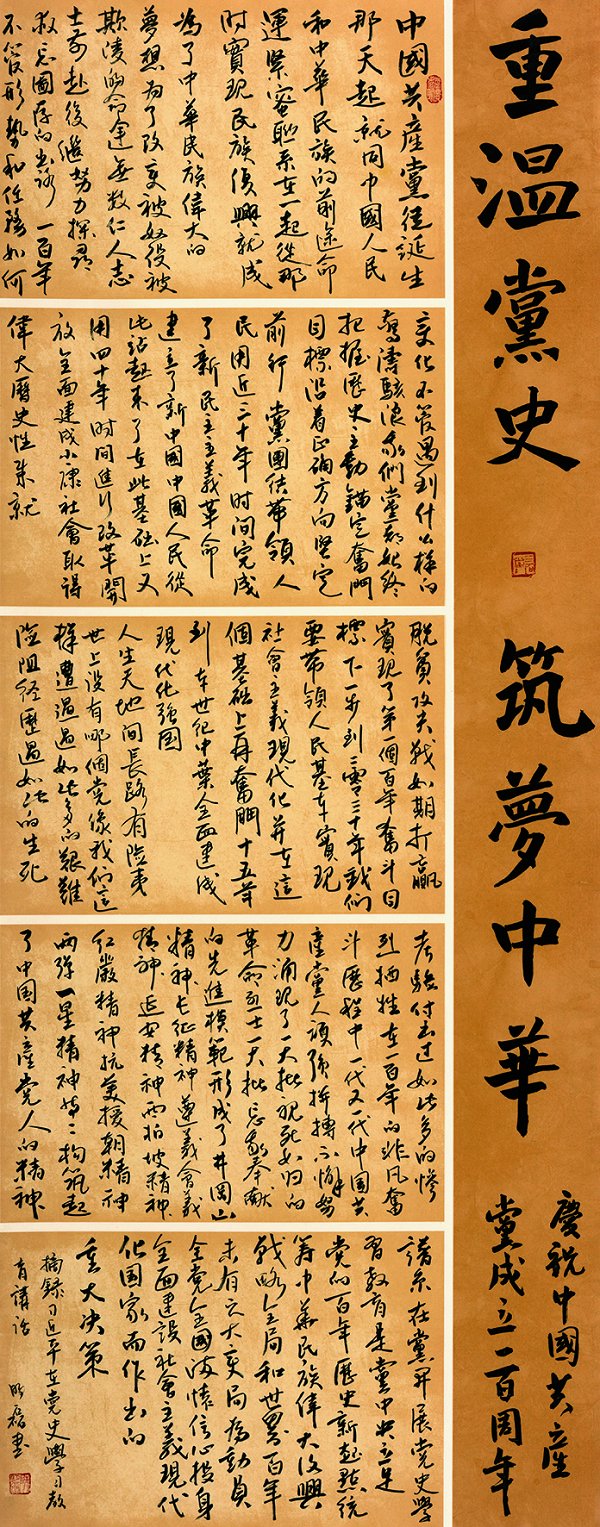 重温黨史 筑夢中華
慶祝中國共產
黨成立一百周年
中國共產黨從誕生
那天起就同中國人民
和中华民族的前途命
運緊密聯系在一起從那
时實現民族復興就成
為了中華民族偉大的
夢想为了改变被奴役被
欺凌的命運無数仁人志
士前赴後繼努力探尋
救亡圖存的出路一百年
不管形勢和任務如何
变化不管遇到什么樣的
驚濤駭浪我們黨都始终
把握歷史主動錨定奮鬥
目標沿着正确方向堅定
前行黨團结帶領人
民用近三十年时间完成
了新民主主義革命
建立了新中國中國人民從
此站起来了在此基础上又
用四十年时間進行改革開
放全面建成小康社會取得
偉大曆史性成就
脱貧攻关战如期打贏
實現了第一個百年奮斗目
標下一步到二零三十年我们
要帶领人民基本實現
社會主義現代化并在這
個基础上再奮鬥十五年
到本世纪中葉全面建成
現代化强國
人生天地間長路有险夷
世上没有哪個党像我们這
樣遭遇過如此多的艱難
险阻经歷過如此的生死
考驗付出过如此多的惨
烈牺牲在一百年的非凡奮
斗歷程中一代又一代中國共
產黨人頑强拼搏不懈努
力涌現了一大批視死如归的
革命烈士一大批忘我奉献
的先進模範形成了井岡山
精神长征精神遵義會義
精神延安精神西柏坡精神
红巖精神抗美援朝精神
两弹一星精神等等构筑起
了中国共產党人的精神
譜系在黨開展党史學
習教育是黨中央立足
党的百年歷史新起點統
筹中華民族偉大復興
戰略全局和世界百年
未有之大变局為動員
全党全國满懷信心投身
全面建設社會主義現代
化国家而作出的
重大决策
摘錄习近平在党史學习教
育講话
磊書